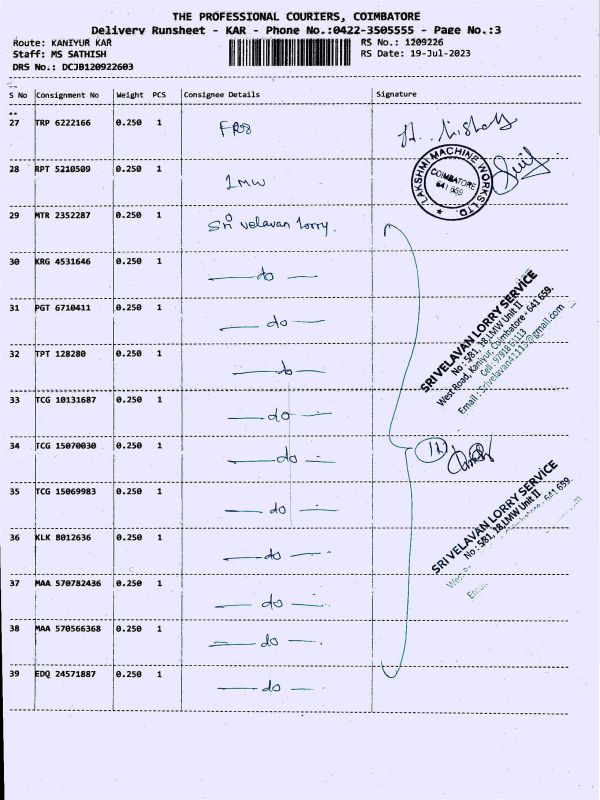 THE PROFESSIONAL COURIERS, COIMBATORE
Delivery Runsheet - KAR - Phone No.:0422-3505555 - Page No.:3
Route: KANIYUR KAR
Staff: MS SATHISH
DRS No.: DCJB120922603
RS No.: 1209226
RS Date: 19-Jul-2023
S No Consignment No Weight PCS Consignee Details Signature
27 TRP 6222166 0.250 1
28 RPT 5210509 0.250 1 LMW
LAKSHMI MACHINE WORKS LTD.
COIMBATORE
641 659
29 MTR 2352287 0.250 1 Sri velavan lorry.
30 KRG 4531646 0.250 1 — do —
31 PGT 6710411 0.250 1 — do —
32 TPT 128280 0.250 1 — do —
33 TCG 10131687 0.250 1 — do —
34 TCG 15070030 0.250 1 — do —
35 TCG 15069983 0.250 1 — do —
36 KLK 8012636 0.250 1 — do —
37 MAA 570782436 0.250 1 — do —
38 MAA 570566368 0.250 1 — do —
39 EDQ 24571887 0.250 1 — do —
SRI VELAVAN LORRY SERVICE
No : 5/81, 18,LMW Unit II
West Road, Kaniyur, Coimbatore - 641 659.
Email : Srivelavan41113@gmail.com
11
SRI VELAVAN LORRY SERVICE
No : 5/81, 18,LMW Unit II
641 659.